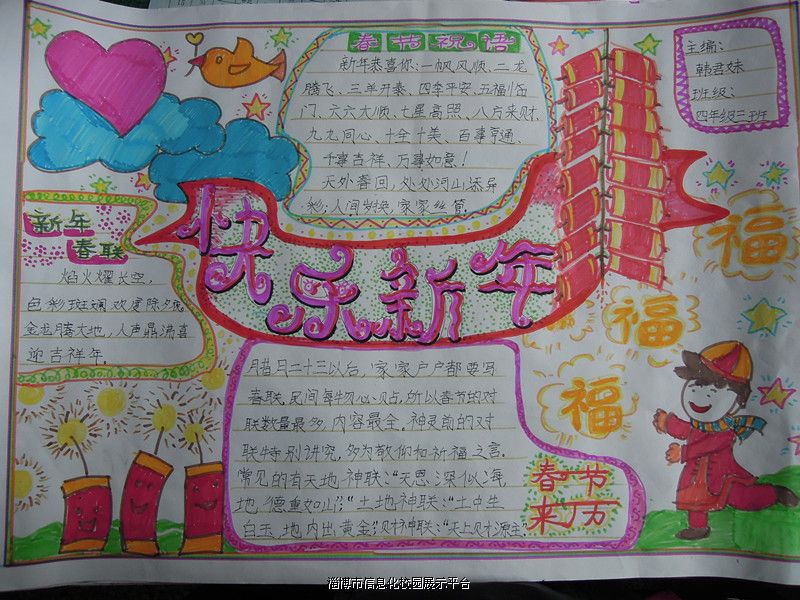 春节祝语
新年恭喜你:一帆风顺、二龙
腾飞、三羊开泰、四季平安、五福临
门、六六大顺、七星高照、八方来财、
九九同心、十全十美、百事亨通、
千事吉祥、万事如意!
天外春回,处处河山添异
彩;人间岁换,家家丝管
主编:
韩君妹
班级:
四年级三班
新年
春联
焰火耀长空,
色彩斑斓欢度除夕夜
金龙腾大地,人声鼎沸喜
迎吉祥年.
快乐新年
福
福
福
腊月二十三以后,家家户户都要写
春联.民间每物必贴,所以春节的对
联数量最多,内容最全.神灵前的对
联特别讲究,多为敬仰和祈福之言.
常见的有天地神联:“天恩深似海,
地德重如山;”土地神联:“土中生
白玉,地内出黄金;”财神联:“天上财源主
春节
来历
淄博市信息化校园展示平台